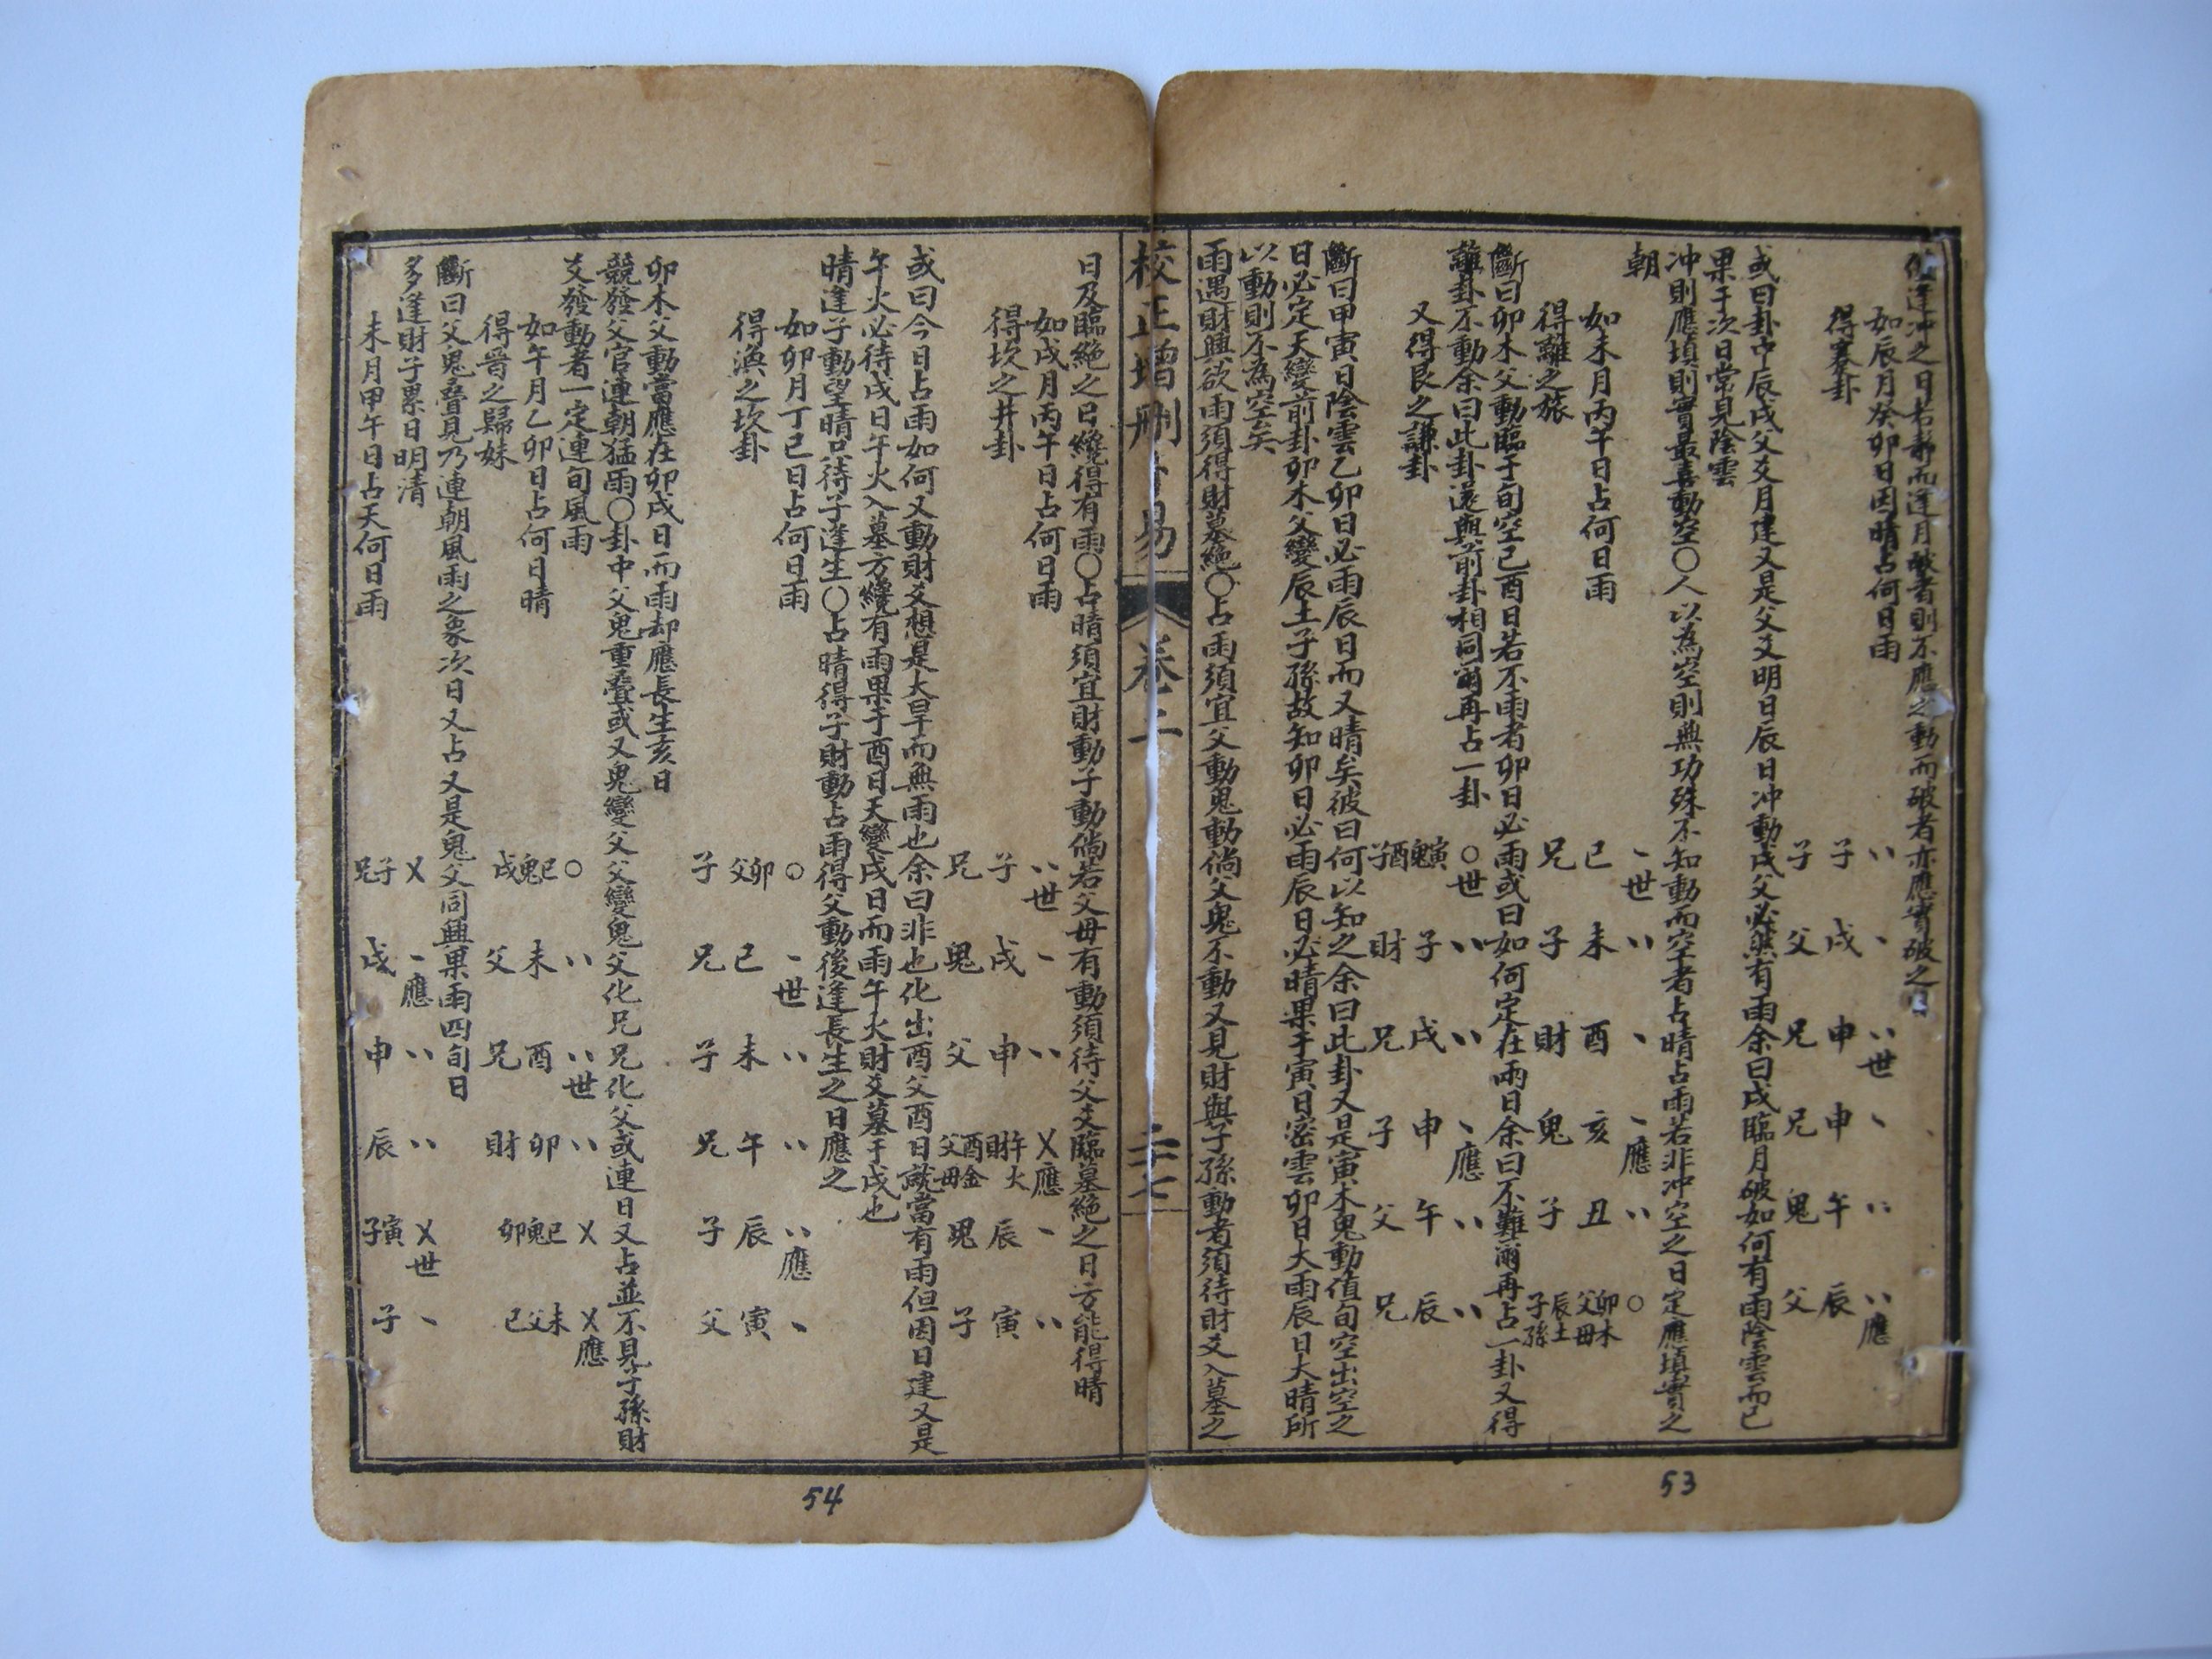 逢冲之日若靜而逢月破者則不應之動而破者亦應實破之日
如辰月癸卯日因晴占何日雨
得蹇卦
子子、、
父戌、
兄申、、世
兄申、
鬼午、、
父辰、、應
或曰卦中辰戌父爻月建又是父爻明日辰日冲動戌父必然有雨余曰戌臨月破如何有雨陰雲而已
果于次日常見陰雲
冲則應填則實最喜動空○人以為空則無功殊不知動而空者占晴占雨若非冲空之日定應填實之
朝
如未月丙午日占何日雨
得離之旅
兄巳、世
子未、、
財酉、
鬼亥、應
子丑、、
子孫辰土父母卯木○
斷曰卯木父動臨于旬空己酉日若不雨者卯日必雨或曰如何定在兩日余曰不難爾再占一卦又得
離卦不動余曰此卦遂與前卦相同爾再占一卦
又得艮之謙卦
子酉鬼寅○世
財子、、
兄戌、、
子申、應
父午、、
兄辰、、
斷曰甲寅日陰雲乙卯日必雨辰日而又晴矣彼曰何以知之余曰此卦又是寅木鬼動值旬空出空之
日必定天變前卦卯木父變辰土子孫故知卯日必雨辰日必晴果于寅日密雲卯日大雨辰日大晴所
以動則不為空矣
雨遇財興欲雨須得財墓絶○占雨須宜父動鬼動倘父鬼不動又見財與子孫動者須待財爻入墓之
校正增刪卜易
卷二
二七
53
日及臨絶之日纔得有雨○占晴須宜財動子動倘若父母有動須待父爻臨墓絶之日方能得晴
如戌月丙午日占何日雨
得坎之井卦
兄子、、世
鬼戌、
父申、、
父母酉金財午火乂應
鬼辰、
子寅、、
或曰今日占雨如何又動財爻想是大旱而無雨也余曰非也化出酉父酉日就當有雨但因日建又是
午火必待戌日午火入墓方纔有雨果于酉日天變戌日而雨午火財爻墓于戌也
晴逢子動望晴只待子逢生○占晴得子財動占雨得父動後逢長生之日應之
如卯月丁巳日占何日雨
得渙之坎卦
子父卯○
兄巳、世
子未、、
兄午、、
子辰、、應
父寅、
卯木父動當應在卯戌日而雨却應長生亥日
競發父官連朝猛雨○卦中父鬼重疊或又鬼變父父變鬼父化兄兄化父或連日又占並不見子孫財
爻發動者一定連旬風雨
如午月乙卯日占何日晴
得晉之歸妹
戌鬼巳○
父未、、
兄酉、世
財卯、、
卯鬼巳乂
巳父未乂應
斷曰父鬼疊見乃連朝風雨之象次日又占又是鬼父同興果雨四旬日
多逢財子累日明清
未月甲午日占天何日雨
兄子乂
戌、應
申、、
辰、、
子寅乂世
子、
54